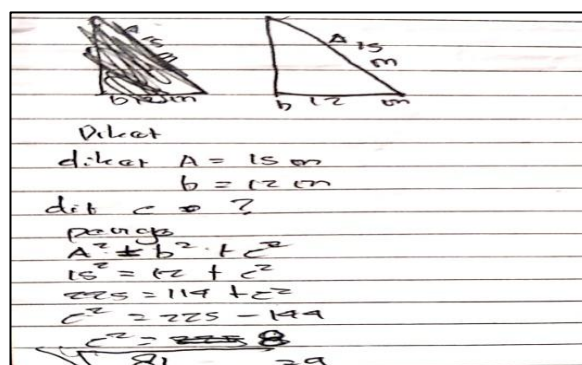 A 15 m
b 12 m
A 15 m
b 12 m
Diket
diket A = 15 m
b = 12 m
dit c = ?
A² = b² + c²
15² = 12 + c²
225 = 114 + c²
c² = 225 - 144
c² = 8
81 = 9